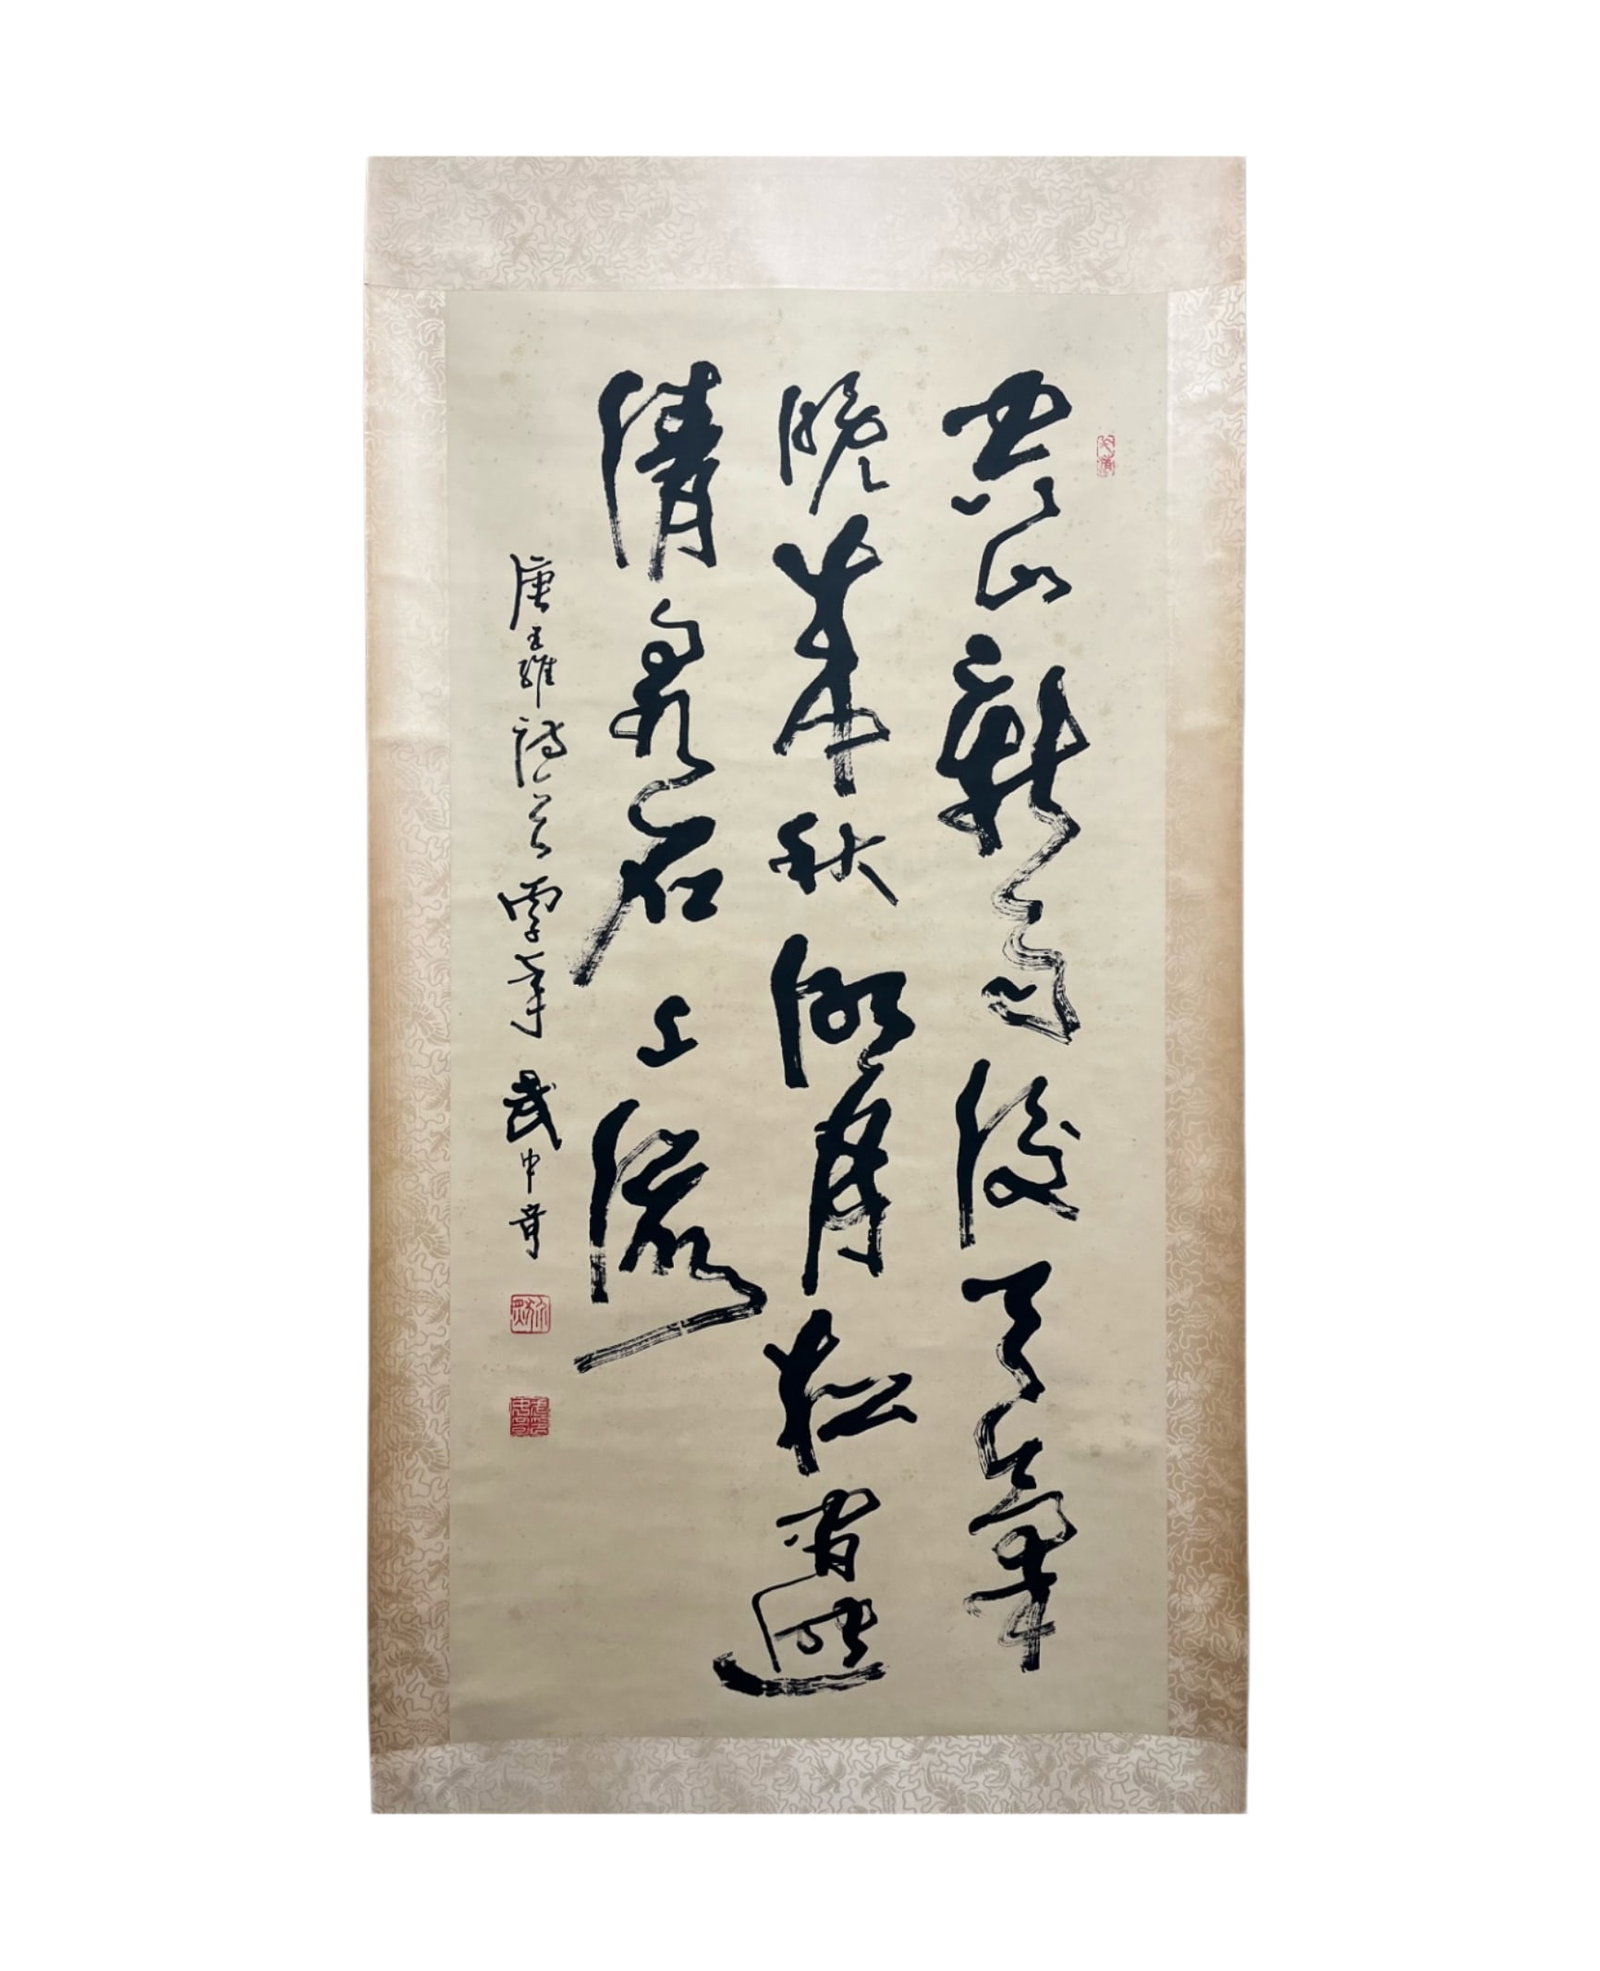 空山新雨後天氣
晚來秋明月松間照
清泉石上流
唐王維詩一首 武中奇